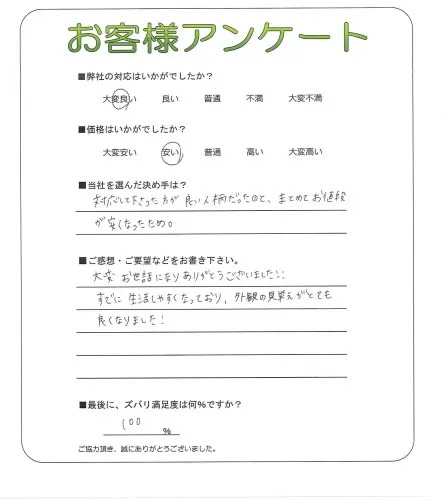 お客様アンケート
■弊社の対応はいかがでしたか？
大変良い　良い　普通　不満　大変不満
■価格はいかがでしたか？
大変安い　安い　普通　高い　大変高い
■当社を選んだ決め手は？
対応して下さった方が良い人柄だったのと、まとめてお値段
が安くなったため。
■ご感想・ご要望などをお書き下さい。
大変お世話になりありがとうございました!!
すでに生活しやすくなっており、外観の見栄えがとても
良くなりました!
■最後に、ズバリ満足度は何％ですか？
100 %
ご協力頂き、誠にありがとうございました。